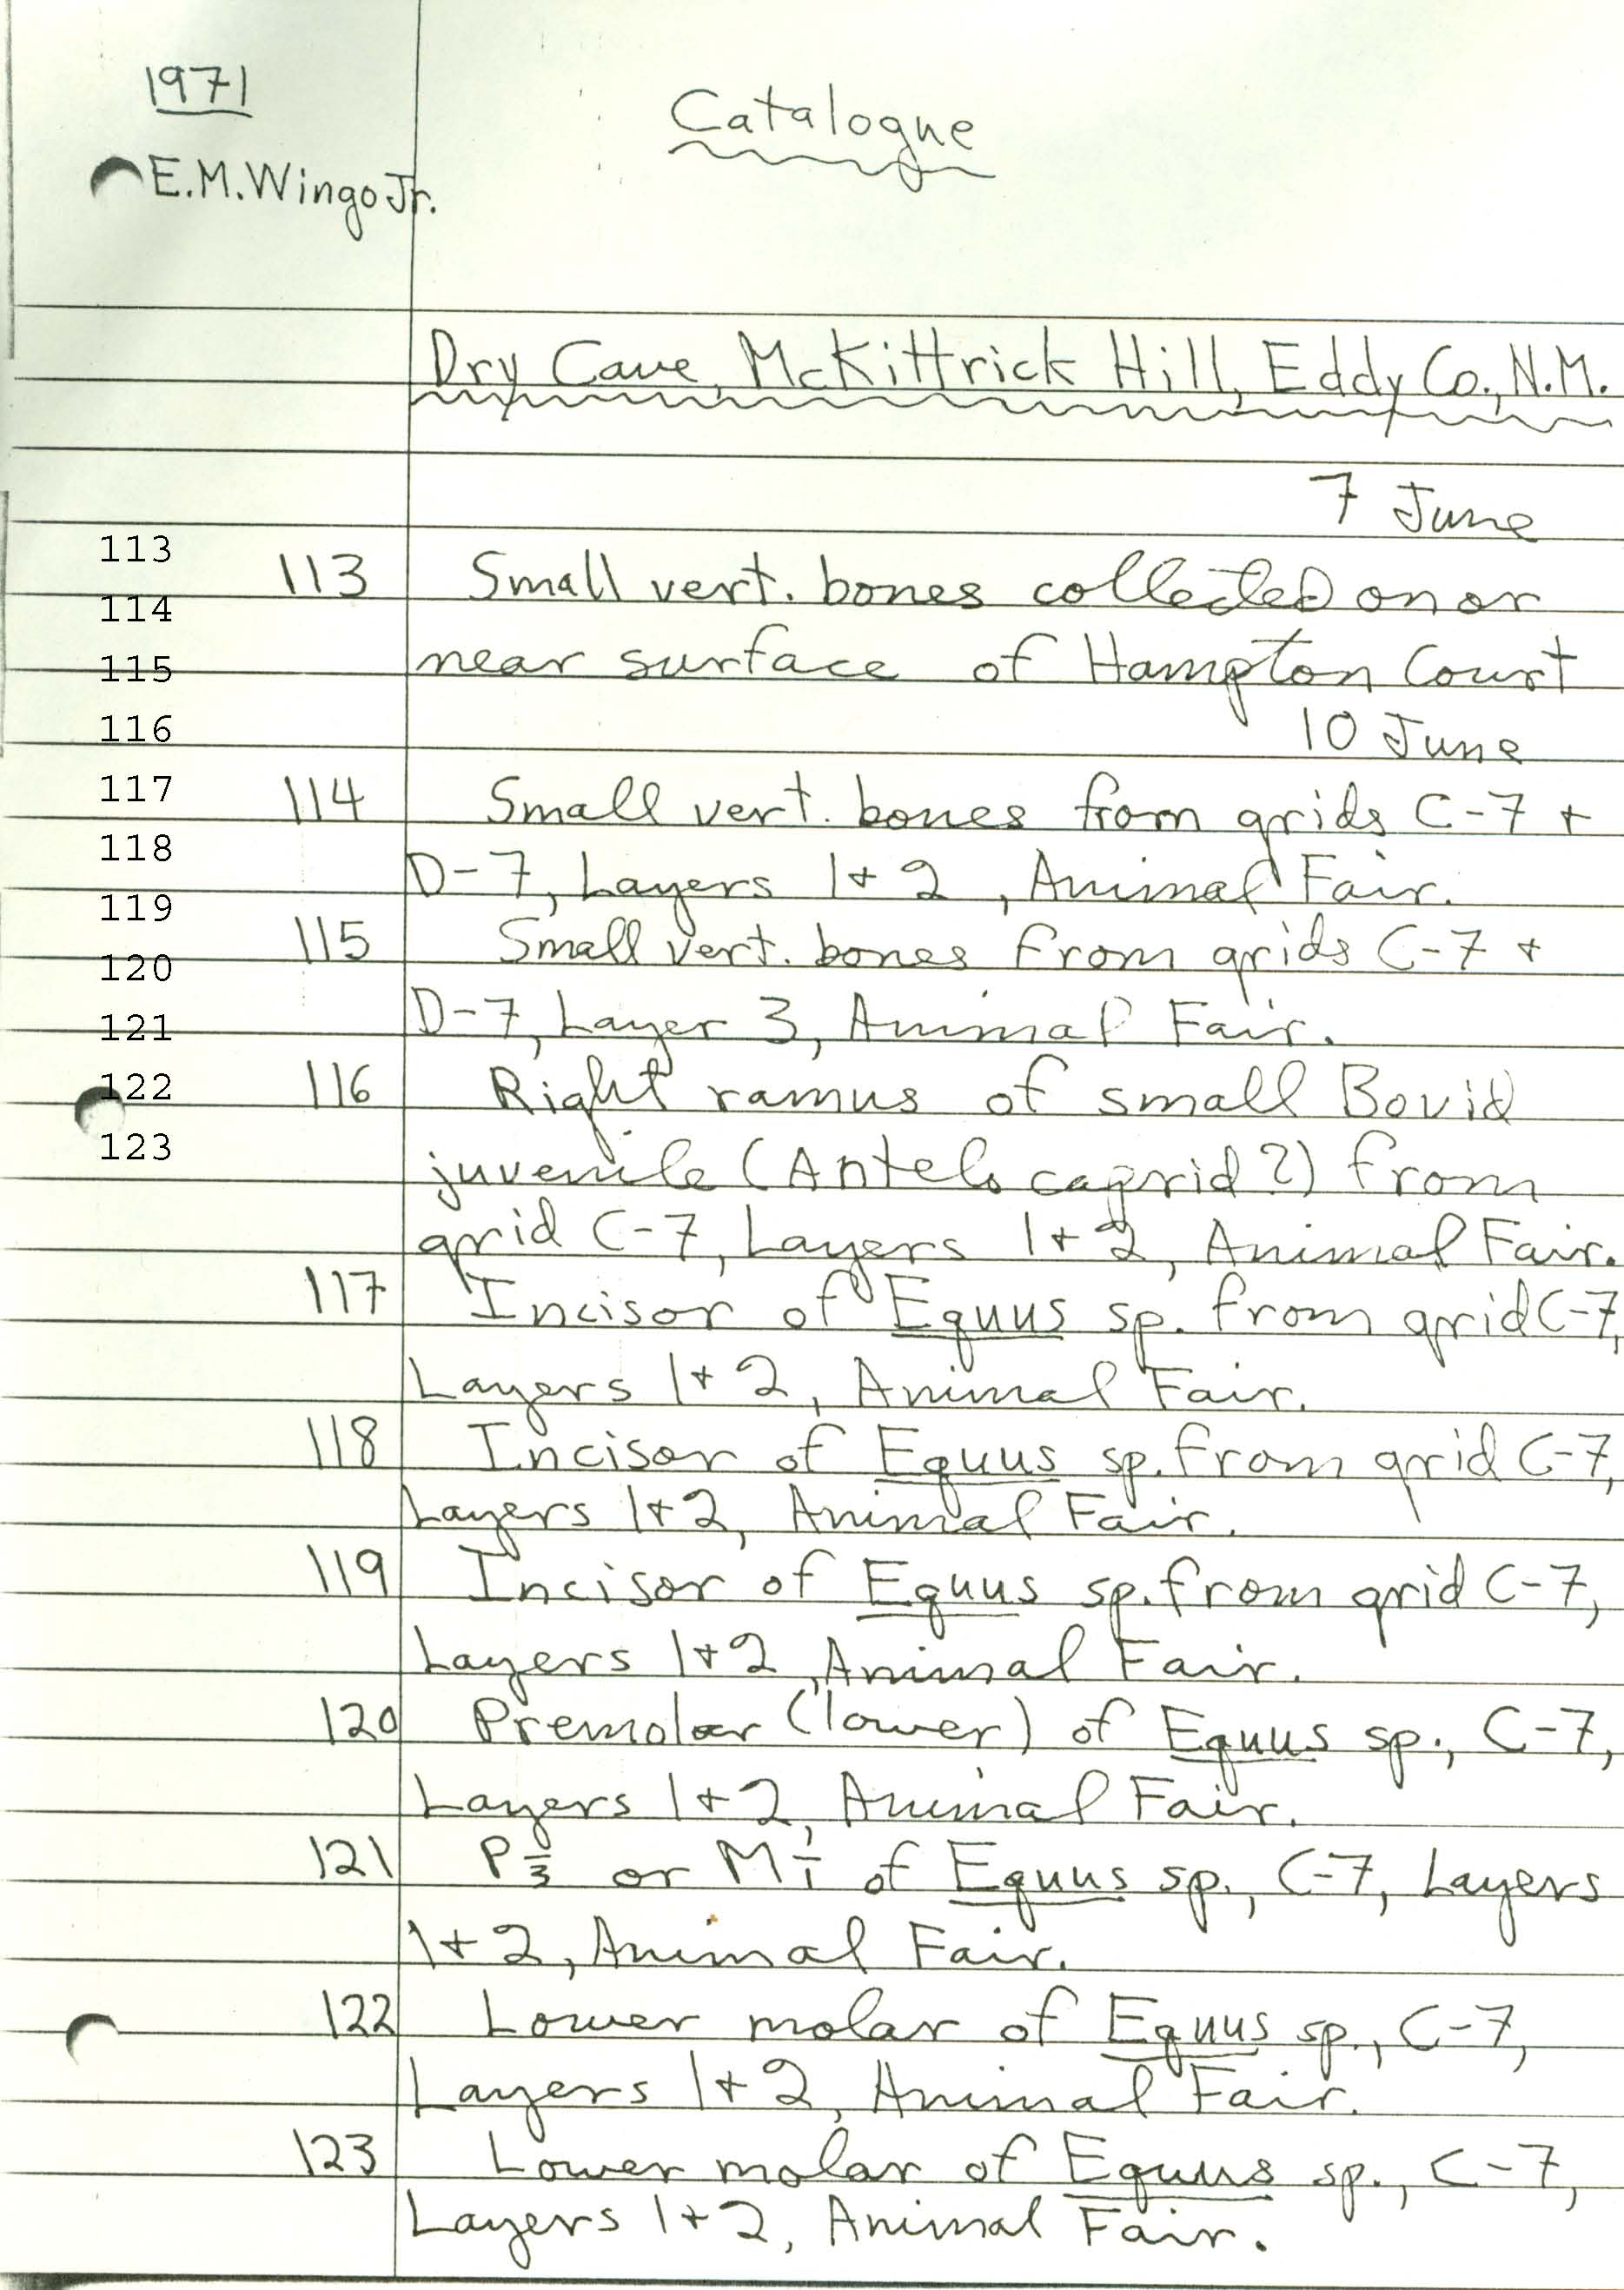 1971
Catalogue
E.M. Wingo Jr.
Dry Cave, McKittrick Hill, Eddy Co., N.M.
7 June
113
113 Small vert. bones collected on or
114
115 near surface of Hampton Court
116 10 June
117
114 Small vert. bones from grids C-7 +
118 D-7, Layers 1+2, Animal Fair.
119
115 Small vert. bones from grids C-7 +
120
121 D-7, Layer 3, Animal Fair.
122
116 Right ramus of small Bovid
123
juvenile (Antelocaprid?) from
grid C-7, Layers 1+2, Animal Fair.
117 Incisor of Equus sp. from grid C-7,
Layers 1+2, Animal Fair.
118 Incisor of Equus sp. from grid C-7,
Layers 1+2, Animal Fair.
119 Incisor of Equus sp. from grid C-7,
Layers 1+2, Animal Fair.
120 Premolar (lower) of Equus sp., C-7,
Layers 1+2, Animal Fair.
121 P 3/3 or M 1/1 of Equus sp., C-7, Layers
1+2, Animal Fair.
122 Lower molar of Equus sp., C-7,
Layers 1+2, Animal Fair.
123 Lower molar of Equus sp., C-7,
Layers 1+2, Animal Fair.